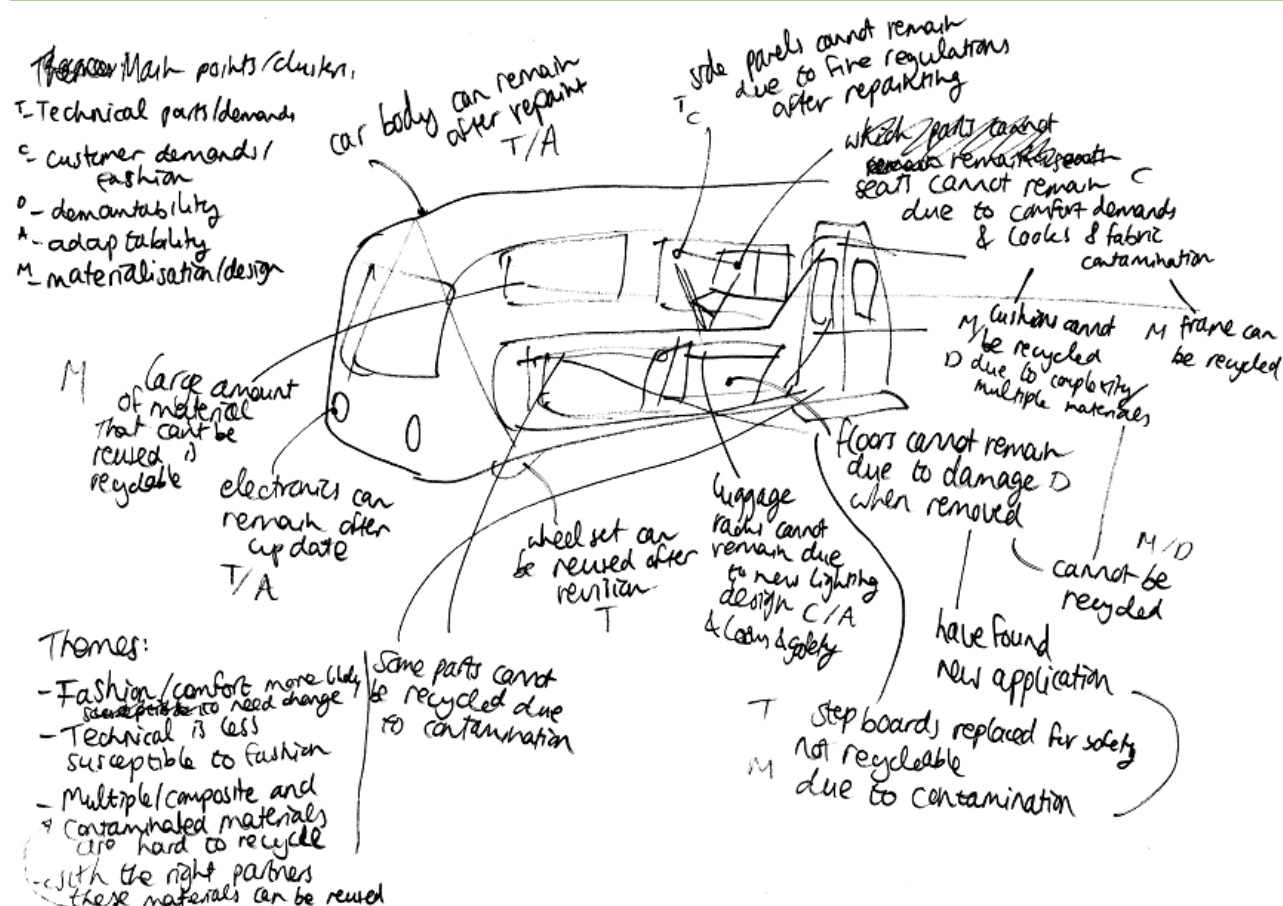 Main points/clusters.
T - Technical parts/demands
C - customer demands/
fashion
D - demantability
A - adaptability
M - materialisation/design
car body can remain
after repaint
T/A
side panels cannot remain
due to fire regulations
after repainting
T
C
which parts cannot
remain
seats cannot remain C
due to comfort demands
& looks & fabric
contamination
M cushions cannot
be recycled
D due to complexity/
multiple materials
M frame can
be recycled
M
large amount
of material
that cant be
reused is
recyclable
electronics can
remain after
update
T/A
wheelset can
be reused after
revision
T
luggage
racks cannot
remain due
to new lighting
design C/A
& looks & safety
floors cannot remain
due to damage D
when removed
M/D
cannot be
recycled
have found
new application
T step boards replaced for safety
not recycleable
M due to contamination
some parts cannot
be recycled due
to contamination
Themes:
- Fashion/comfort more likely
to need change
- Technical is less
susceptible to fashion
- Multiple/composite and
contaminated materials
are hard to recycle
- with the right partners
these materials can be reused